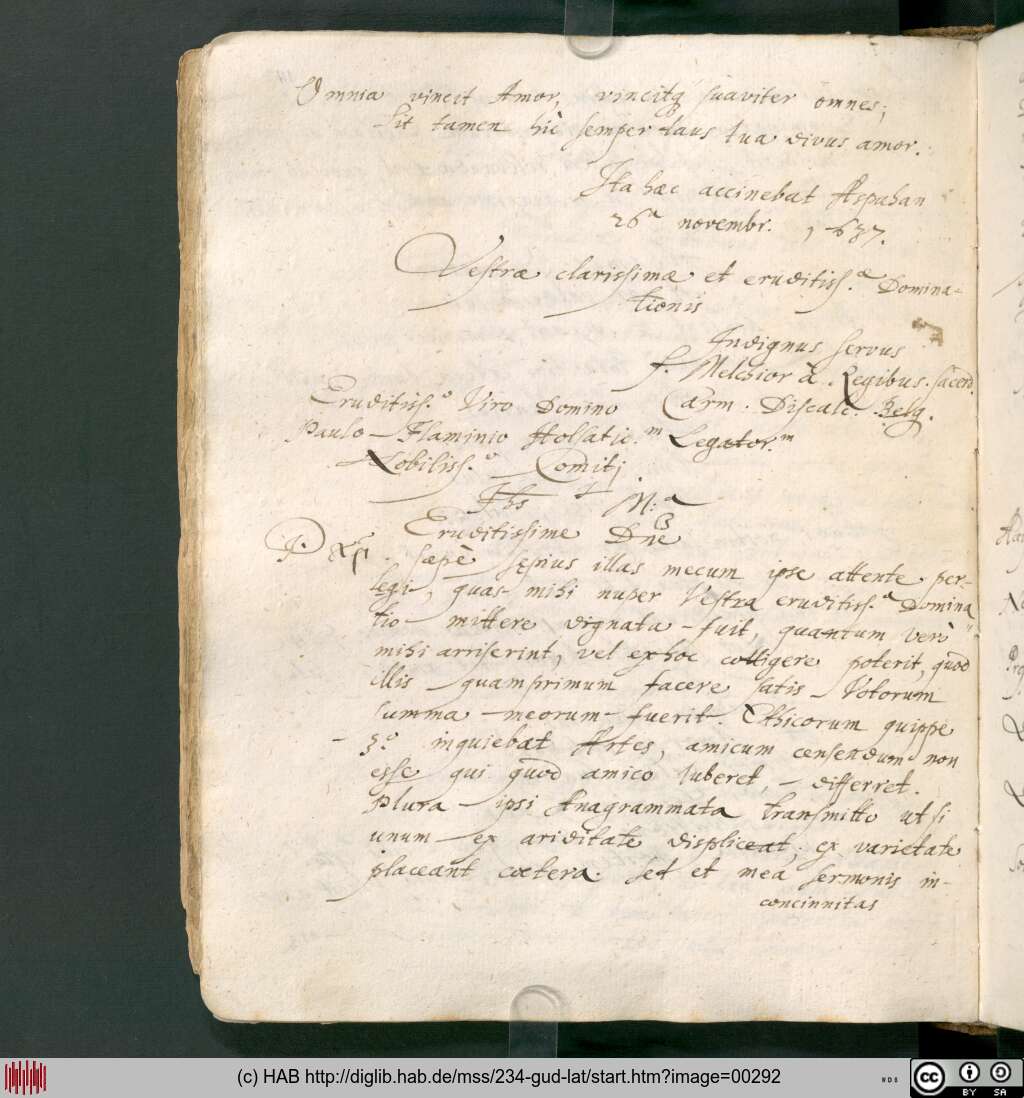 Omnia vincit Amor, vincitq suaviter omnes;
Sit tamen hic semper laus tua divus amor.
Ita hæc accinebat Aspahan
26ª novembr. 1637.
Vestræ clarissimæ et eruditiss.æ Domina-
tionis
Indignus servus
f. Melchior à Regibus. sacerd.
Carm. Discalc. Belg.
Eruditiss.º Viro Domino
Paulo Flaminio Holsatic.m Legator.m
Nobiliss.º Comiti
Jhs M:ª
Eruditissime Dne
P. Xpi. sæpè sępius illas mecum ipse attente per-
legi, quas mihi nuper Vestra eruditiss.ª Domina
tio mittere dignata fuit, quantum verò
mihi arriserint, vel ex hoc colligere poterit, quod
illis quamprimum facere satis Votorum
summa meorum fuerit. Ethicorum quippe
3º inquiebat Artes, amicum censendum non
esse qui quod amico luberet, differret.
Plura ipsi Anagrammata transmitto ut si
unum ex ariditate displiceat, ex varietate
placeant cœtera. sed et mea sermonis in-
concinnitas
(c) HAB http://diglib.hab.de/mss/234-gud-lat/start.htm?image=00292
cc BY SA